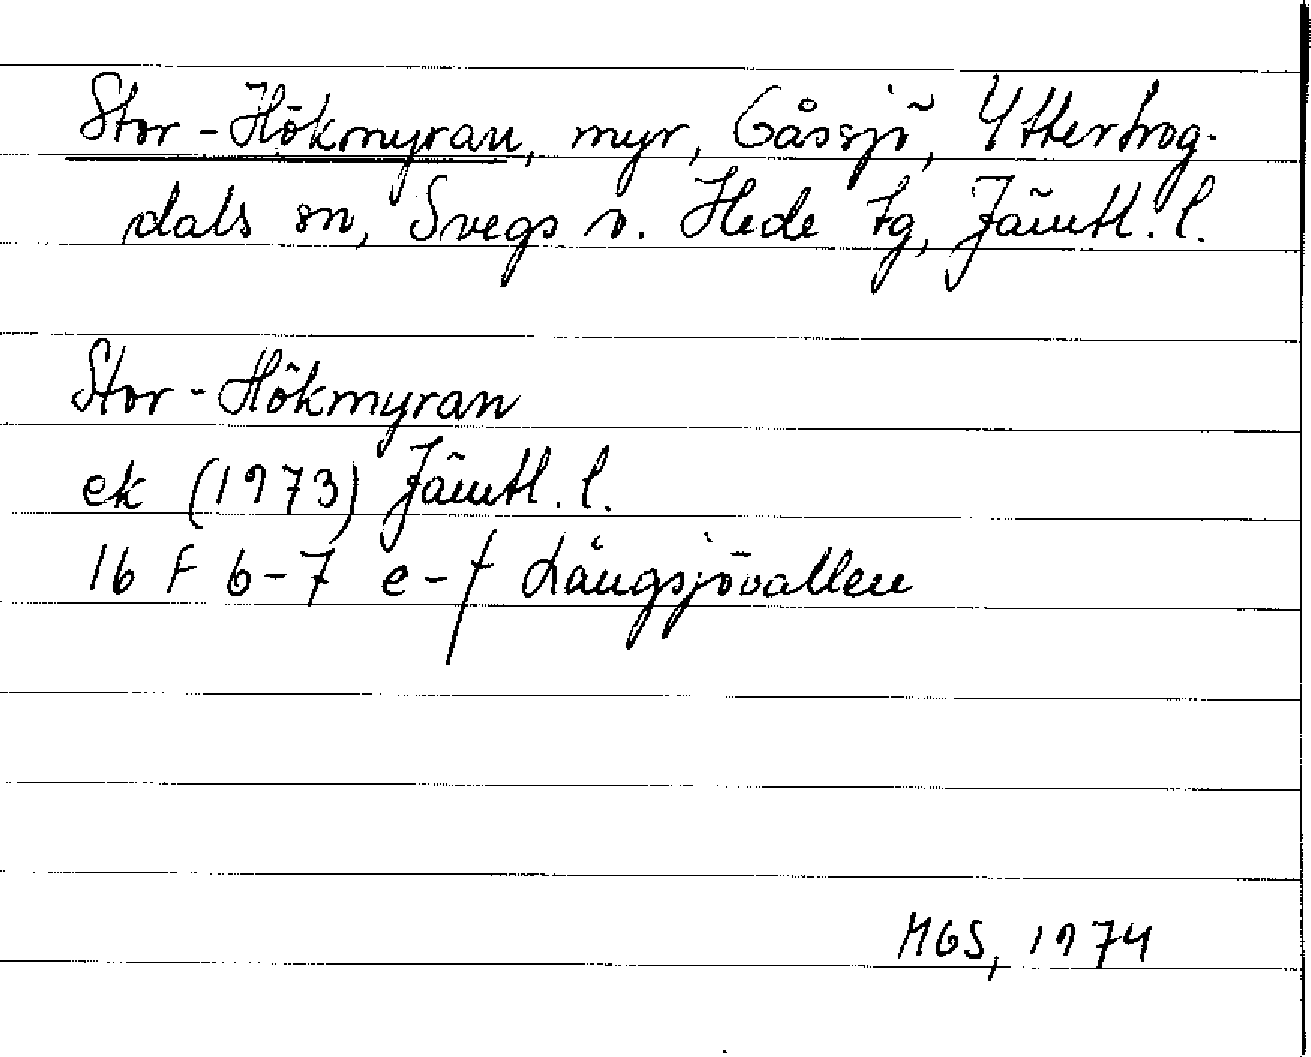 Stor-Hökmyran, myr, Gåssjö, Ytterhog-
dals sn, Svegs o. Hede tg, Jämtl. l.
Stor-Hökmyran
ek (1973) Jämtl. l.
16 F 6-7 e-f Långsjövallen
MGS, 1974